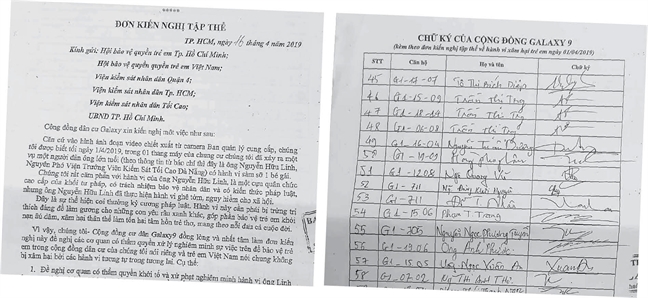 ĐƠN KIẾN NGHỊ TẬP THỂ
TP. HCM, ngày 16 tháng 4 năm 2019
Kính gửi: Hội bảo vệ quyền trẻ em Tp. Hồ Chí Minh;
Hội bảo vệ quyền quyền trẻ em Việt Nam;
Viện kiểm sát nhân dân Quận 4;
Viện kiểm sát nhân dân Tp. HCM;
Viện kiểm sát nhân dân Tối Cao;
UBND TP. Hồ Chí Minh.
Cộng đồng dân cư Galaxy xin kiến nghị một việc như sau:
Căn cứ vào hình ảnh đoạn video chiết xuất từ camera Ban quản lý cung cấp, chúng
tôi được biết tối ngày 1/4/2019, trong 01 thang máy của chung cư chúng tôi đã xảy ra một
vụ một người đàn ông lớn tuổi (theo thông tin từ báo chí thì đây là ông Nguyễn Hữu Linh,
nguyên Phó Viện Trưởng Viện Kiểm Sát Tối Cao Đà Nẵng) có hành vi sàm sỡ 1 bé gái.
Chúng tôi rất căm phẫn với hành vi của ông Nguyễn Hữu Linh, là một cựu quan chức
cao cấp của khối tư pháp, có trách nhiệm bảo vệ nhân dân và có kiến thức pháp luật,
nhưng ông Nguyễn Hữu Linh đã thực hiện hành vi ghê tởm, nguy hiểm cho xã hội.
Đây là sự thể hiện coi thường kỷ cương pháp luật. Hành vi này cần phải bị trừng trị
thích đáng để làm gương cho những con yêu râu xanh khác, góp phần bảo vệ trẻ em khỏi
nạn ấu dâm, xâm hại thân thể làm tổn hại tâm hồn trẻ thơ, mang theo nỗi đau cả cuộc đời.
Vì vậy, chúng tôi- Cộng đồng dân cư Galaxy9 đồng lòng và nhất tâm làm đơn kiến
nghị này đề nghị các cơ quan có thẩm quyền xử lý nghiêm minh sự việc trên để bảo vệ trẻ
em trong cộng đồng dân cư của chúng tôi nói riêng và trẻ em Việt Nam nói chung không
bị xâm hại bởi các hành vi tương tự trong tương lai. Cụ thể:
1. Đề nghị cơ quan có thẩm quyền khởi tố và xử phạt nghiêm minh hành vi ông Linh
CHỮ KÝ CỦA CỘNG ĐỒNG GALAXY 9
(kèm theo đơn kiến nghị tập thể về hành vi xâm hại trẻ em ngày 01/04/2019)
STT Căn hộ Họ và tên Chữ ký
45 G1-17-07 Tô Thị Bích Diệp
46 G1-15-09 Trần Thị
47 G1-18-14 Trần Thị
48 G1-06-08 Trần Thị
49 G1-16-04 Nguyễn
50 G1-19-09
51 G1-1208 Ngô Quang
52 G1-711
53 G1-711
54 G1-15.06 Phạm T Trang
55 G1-205 Nguyễn Ngọc Phương
56 G1-19.06 Ông Anh Phước
57 G1-15.05 Ngọc Xuân An
58 G1-07-02 Thị Anh Thi